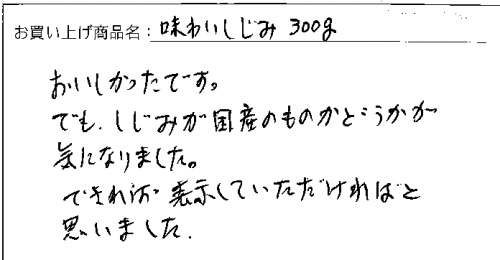 お買い上げ商品名：味わいしじみ 300g
おいしかったです。
でも、しじみが国産のものかどうかが
気になりました。
できれば 表示していただければと
思いました.